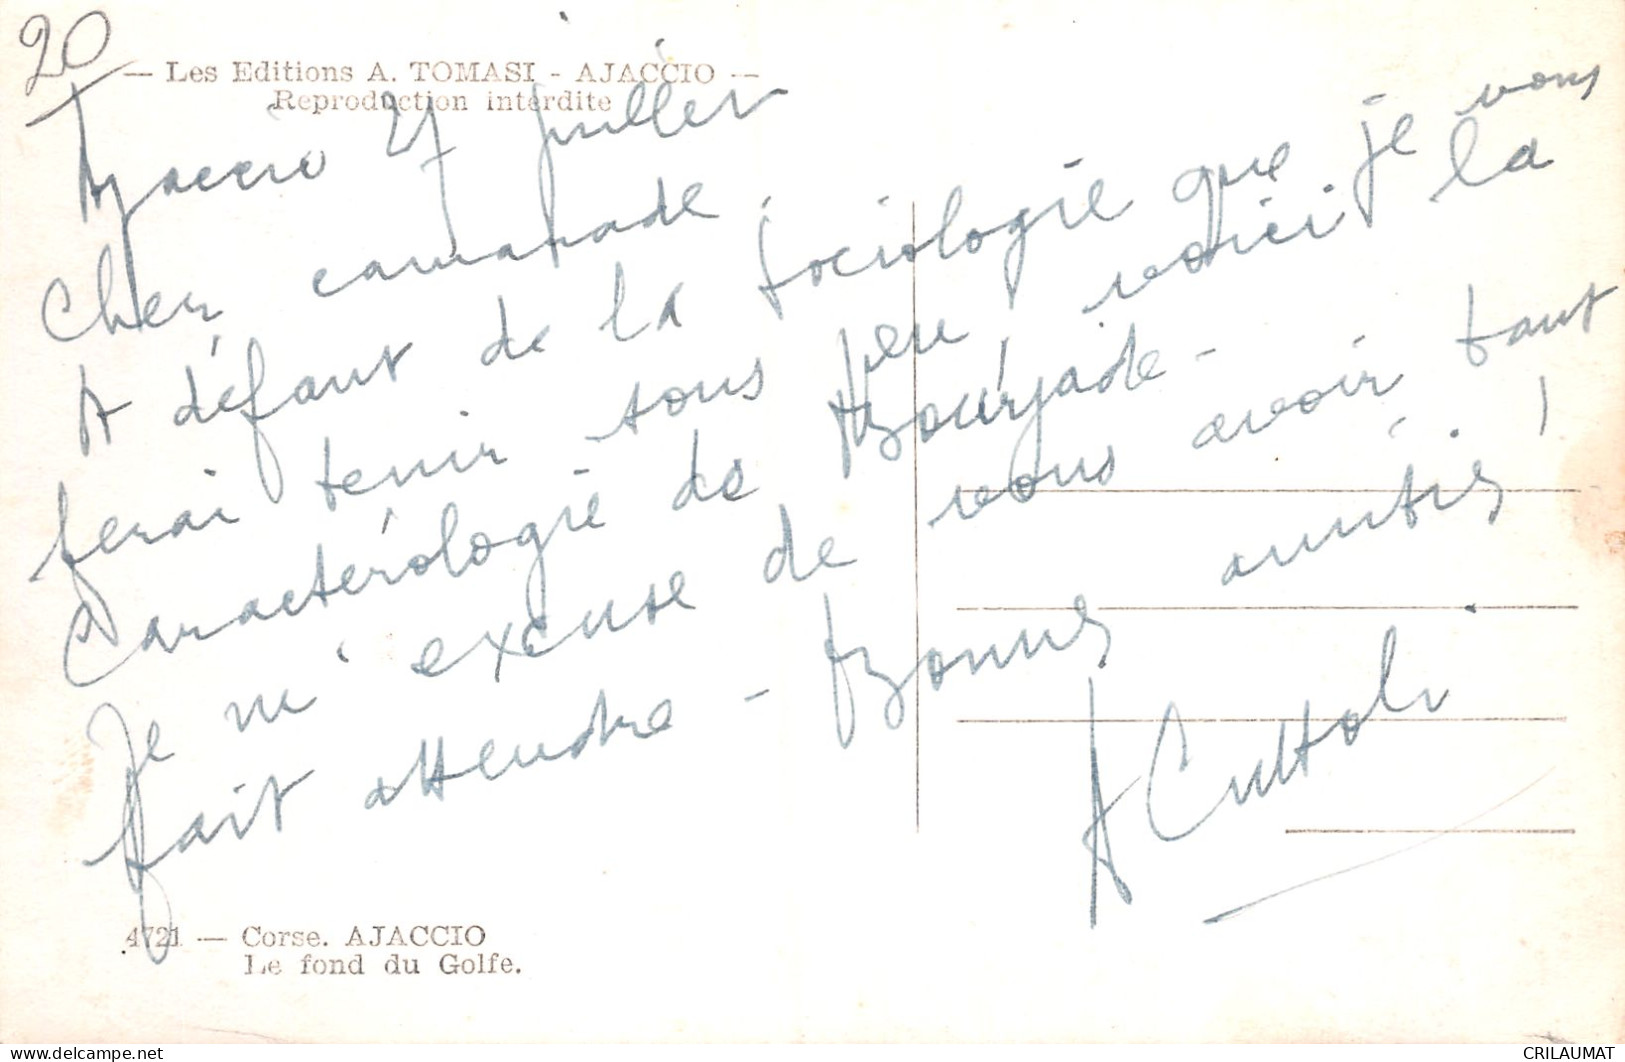 20
— Les Editions A. TOMASI - AJACCIO —
Reproduction interdite
Ajaccio 27 juillet
Cher camarade,
A défaut de la sociologie que je vous
ferai tenir sous peu voici la
Caractérologie de Bourjade -
Je m'excuse de vous avoir tant
fait attendre - Bonnes amitiés !
A Cuttoli
4721 — Corse. AJACCIO
Le fond du Golfe.
CRILAUMAT